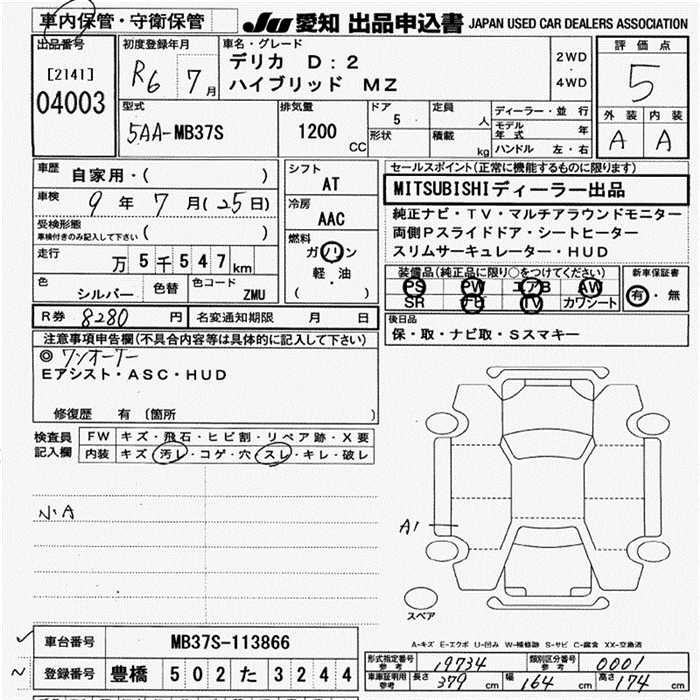 車内保管・守衛保管
JU 愛知 出品申込書 JAPAN USED CAR DEALERS ASSOCIATION
出品番号
[2141]
04003
初度登録年月
R6 7月
車名・グレード
デリカ D:2
ハイブリッド MZ
2WD
・
4WD
評価点
5
外装 内装
A A
型式
5AA-MB37S
排気量
1200
CC
ドア
5
形状
定員
人
積載
kg
ディーラー・並行
モデル年式 年
ハンドル 左・右
車歴
自家用・( )
車検
9年 7月(25日)
受検形態
車検付きのみ記入して下さい ( )
走行
万5千547km
色
シルバー
色替
色コード
ZMU
シフト
AT
冷房
AAC
燃料
ガソリン
軽・油
( )
セールスポイント(正常に機能するものに限ります)
MITSUBISHIディーラー出品
純正ナビ・TV・マルチアラウンドモニター
両側Pスライドドア・シートヒーター
スリムサーキュレーター・HUD
装備品(純正品に限り○をつけてください)
PS PW エアB AW
SR TV カワシート
新車保証書
有・無
R券 8280 円
名変通知期限 月 日
後日品
保・取・ナビ取・Sスマキー
注意事項申告欄(不具合内容等は具体的に記入して下さい)
◎ワンオーナー
Eアシスト・ASC・HUD
修復歴 有 〔箇所 〕
検査員記入欄
FW キズ・飛石・ヒビ割・リペア跡・X要
内装 キズ・汚レ・コゲ・穴・スレ・キレ・破レ
N.A
A1
スペア
A-キズ E-エクボ U-凹み W-補修跡 S-サビ C-腐食 XX-交換済
車台番号 MB37S-113866
登録番号 豊橋 502 た 3244
形式指定番号 参考 19734
類別区分番号 参考 0001
車庫証明用 参考 長さ 379 cm 幅 164 cm 高さ 174 cm